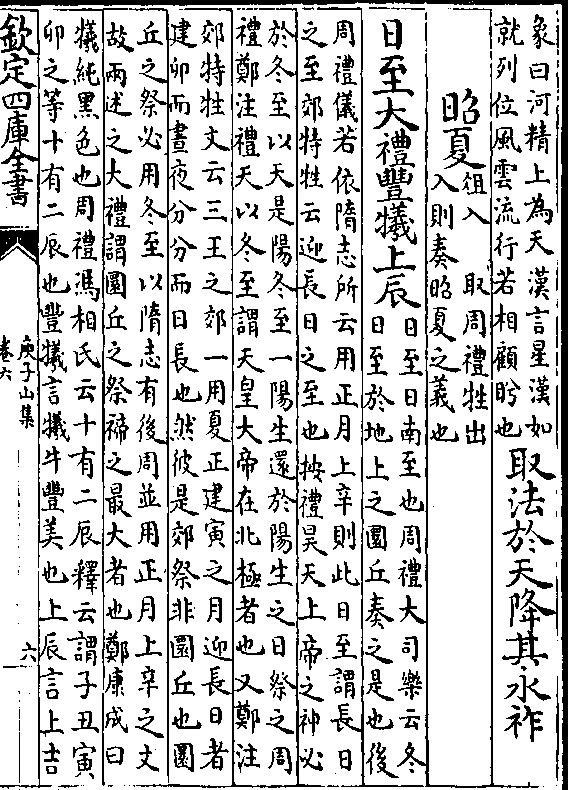 象曰河精上為天漢言星漢如
就列位風雲流行若相顧盻也
取法於天降其永祚
昭夏
俎入　取周禮牲出
入則奏昭夏之義也
日至大禮豐犧上辰
日至日南至也周禮大司樂云冬
日至於地上之圜丘奏之是也後
周禮儀若依隋志所云用正月上辛則此日至謂長日
之至郊特牲云迎長日之至也按禮昊天上帝之神必
於冬至以天是陽冬至一陽生還於陽生之日祭之周
禮鄭注禮天以冬至謂天皇大帝在北極者也又鄭注
郊特牲文云三王之郊一用夏正建寅之月迎長日者
建卯而晝夜分分而日長也然彼是郊祭非圜丘也圜
丘之祭必用冬至以隋志有後周並用正月上辛之文
故兩述之大禮謂圜丘之祭禘之最大者也鄭康成曰
犧純黑色也周禮馮相氏云十有二辰釋云謂子丑寅
卯之等十有二辰也豐犧言犧牛豐美也上辰言上吉
欽定四庫全書
庾子山集
卷六
六